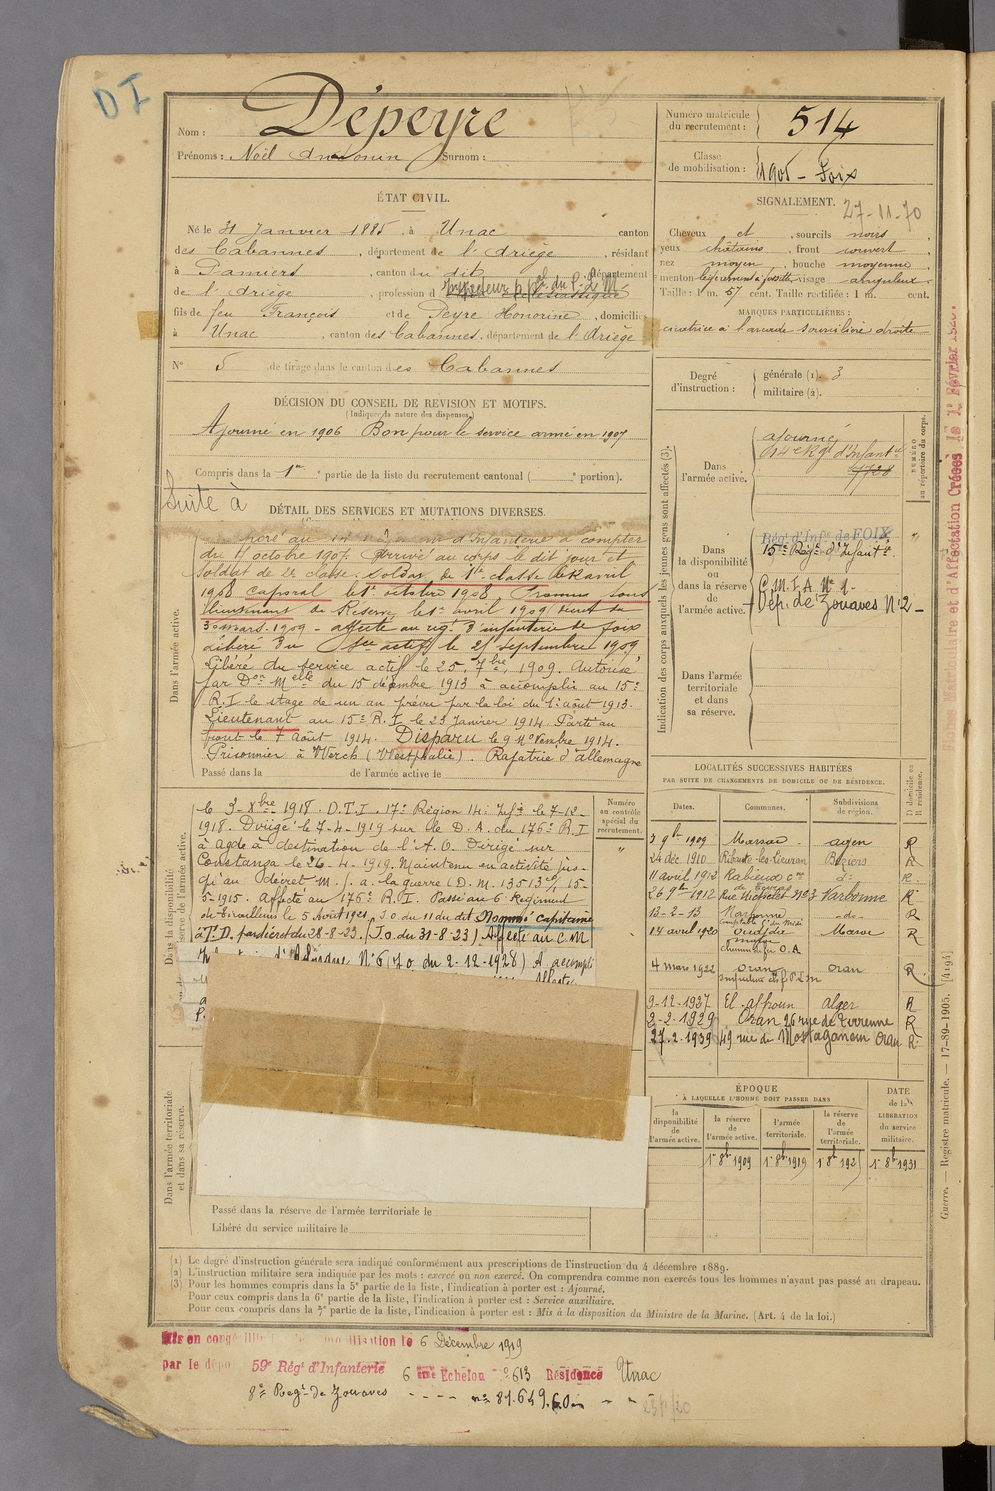 DI
Nom : Dépeyre
Prénoms : Noël Antonin Surnom :
Numéro matricule du recrutement : 514
Classe de mobilisation : 1905 - Foix
ÉTAT CIVIL.
Né le 31 Janvier 1885, à Unac canton
des Cabannes, département de l'Ariège, résidant
à Pamiers, canton du dit, département
de l'Ariège, profession d
fils de feu François et de Peyre Honorine, domiciliés
à Unac, canton des Cabannes, département de l'Ariège
N° 5 de tirage dans le canton des Cabannes
SIGNALEMENT. 27-11-70
Cheveux et , sourcils noirs ,
yeux châtains , front couvert ,
nez moyen , bouche moyenne ,
menton légèrement à fossette, visage anguleux
Taille : 1 m. 57 cent. Taille rectifiée : 1 m. cent.
MARQUES PARTICULIÈRES :
cicatrice à l'arcade sourcilière droite
Degré d'instruction : générale (1). 3
militaire (2).
DÉCISION DU CONSEIL DE REVISION ET MOTIFS.
(Indiquer la nature des dispenses.)
Ajourné en 1906 Bon pour le service armé en 1907
Compris dans la 1re partie de la liste du recrutement cantonal ( portion).
Suite à
DÉTAIL DES SERVICES ET MUTATIONS DIVERSES.
Dans l'armée active.
d'Infanterie à compter
du 11 octobre 1907. Arrivé au corps le dit jour et
soldat de 2e classe. Soldat de 1re classe le avril
1908 Caporal le 1er octobre 1908 Promu sous
lieutenant de Réserve le 1er avril 1909
30 mars 1909 - affecté au rég. d'infanterie de Foix
libéré du actif le 25 septembre 1909
Libéré du service actif le 25 7bre 1909. Autorisé
par Don Melle du 15 décembre 1913 à accomplir au 15e
R.I le stage de un an prévu par la loi du 1er août 1913.
Lieutenant au 15e R.I le 23 Janvier 1914. Parti au
front le 7 Août 1914. Disparu le 9 Novembre 1914.
Prisonnier à Werch (Westphalie). Rapatrié d'allemagne
Passé dans la de l'armée active le
le 3-Xbre 1918. D.T.I. 17e Région le 7-12-
1918. Dirigé le 7-4-1919 sur le D.A. du 176e R.I
à Agde à destination de l'A.O. Dirigé sur
Constanza le 26-4-1919. Maintenu en activité jus-
qu'au décret M. f. a. la guerre (D.M. 13513 15-
5-1915. Affecté au 176e R.I. Passé au 6e Régiment
de Tirailleurs le 5 Août 1921 J.O. du 11 du dit Nommé Capitaine
à T.D. par décret du 28-8-23. (J.O. du 31-8-23) Affecté au C.M
N° 6 (J.O. du 2-12-1928) A accompli
Numéro au contrôle spécial du recrutement.
Dans l'armée territoriale et dans sa réserve.
Passé dans la réserve de l'armée territoriale le
Libéré du service militaire le
Indication des corps auxquels les jeunes gens sont affectés (3).
NUMÉRO au répertoire du corps.
Dans l'armée active.
ajourné
14e Rgt d'Infantie
7728
Dans la disponibilité ou dans la réserve de l'armée active.
Régt d'Infie de FOIX
15e Régt d'Infantie
C.M.I.A N° 1-
Dép. de Zouaves N° 2-
Dans l'armée territoriale et dans sa réserve.
LOCALITÉS SUCCESSIVES HABITÉES
PAR SUITE DE CHANGEMENTS DE DOMICILE OU DE RÉSIDENCE.
Dates. Communes. Subdivisions de région. D domicile ou R résidence.
9bre 1909 agen R
24 déc. 1910 Béziers R
11 avril 1912 Rabieux d° R
26 9bre 1912 Rue Michelet N° 3 Narbonne R
13-2-13 Narbonne -do- R
14 avril 1920 oudjda Maroc R
4 mars 1922 oran oran R
9-12-1927 El-affroun alger R
2-2-1929 Oran 26 rue de Turenne R
27.2.1939 49 rue de Mostaganem Oran R
ÉPOQUE
À LAQUELLE L'HOMME DOIT PASSER DANS
la disponibilité de l'armée active. la réserve de l'armée active. l'armée territoriale. la réserve de l'armée territoriale.
DATE de la LIBÉRATION du service militaire.
1er 8bre 1909 1er 8bre 1919 1er 8bre 192 1er 8bre 1931
(1) Le degré d'instruction générale sera indiqué conformément aux prescriptions de l'instruction du 4 décembre 1889.
(2) L'instruction militaire sera indiquée par les mots : exercé ou non exercé. On comprendra comme non exercés tous les hommes n'ayant pas passé au drapeau.
(3) Pour les hommes compris dans la 5e partie de la liste, l'indication à porter est : Ajourné.
Pour ceux compris dans la 6e partie de la liste, l'indication à porter est : Service auxiliaire.
Pour ceux compris dans la 7e partie de la liste, l'indication à porter est : Mis à la disposition du Ministre de la Marine. (Art. 4 de la loi.)
Mis en congé le 6 Décembre 1919
par le dépo 59e Régt d'Infanterie 6 ème Echelon n° 613 Résidence Unac
8e Regt de Zouaves - - - - n° 81.649.60
Guerre. — Registre matricule. — 17-89-1905. [4194]
Fiches Matriculaire et d'Affectation Créées le 1er Février 192